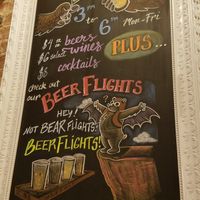 3pm
to 6pm Mon-Fri
$4 beers
$6 select wines PLUS...
$5 cocktails
check out
our BEER FLIGHTS
HEY!
NOT BEAR FLIGHTS?
BEER FLIGHTS!